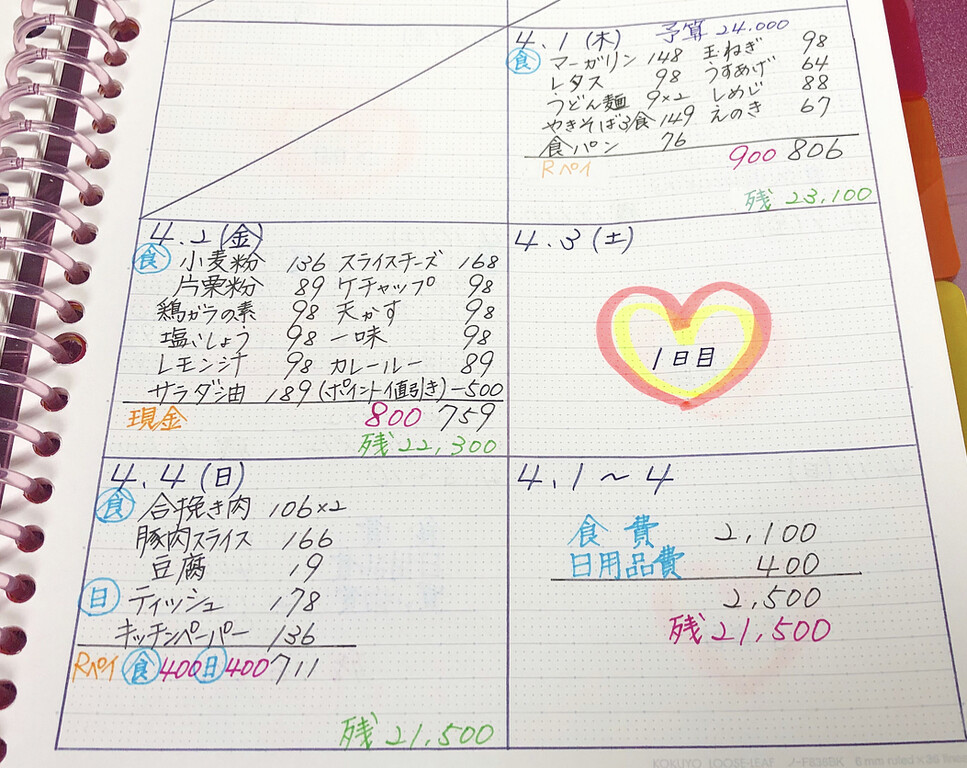 4.1 (木) 予算 24.000
食 マーガリン 148 玉ねぎ 98
レタス 98 うすあげ 64
うどん麺 9×2 しめじ 88
やきそば3食 149 えのき 67
食パン 76
Rペイ 900 806
残 23,100
4.2 (金)
食 小麦粉 136 スライスチーズ 168
片栗粉 89 ケチャップ 98
鶏ガラの素 98 天かす 98
塩こしょう 98 一味 98
レモン汁 98 カレールー 89
サラダ油 189 (ポイント値引き) -500
現金 800 759
残 22,300
4.3 (土)
1日目
4.4 (日)
食 合挽き肉 106×2
豚肉スライス 166
豆腐 19
日 ティッシュ 178
キッチンペーパー 136
Rペイ 食 400 日 400 711
残 21,500
4.1 ～ 4
食費 2,100
日用品費 400
2,500
残 21,500
KOKUYO LOOSE-LEAF ノ-F836BK 6 mm ruled